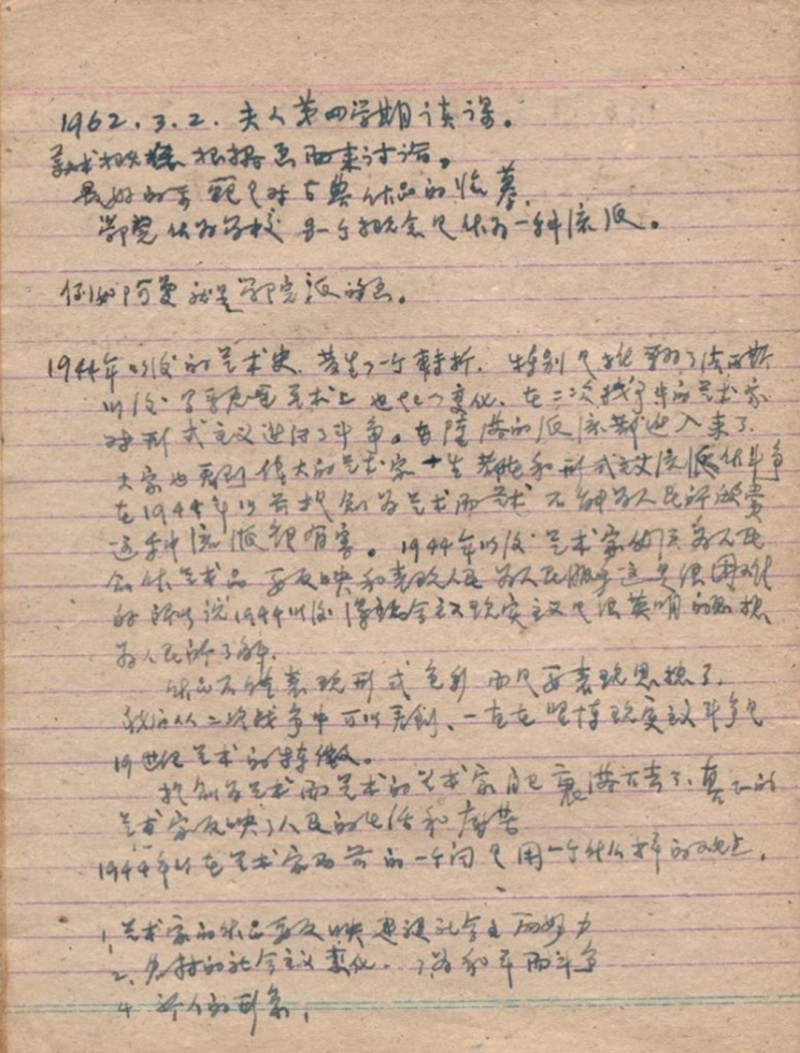 1962.3.2. 夫人第四学期谈课。
根据画面来讨论。
最好的 是对古典作品的临摹.
学院作为学校 是一个概念 是作为一种流派。
例如阿曼就是学院派的画。
1944年以后的艺术史. 发生了一个转折. 特别是在
以后 艺术上也起了变化. 在二次战争中的艺术家
对形式主义进行了斗争。 的派流都进入来了.
大家也看到伟大的艺术家一生都在和形式主义流派作斗争
在1944年以前 为艺术而艺术 不能为人民所欣赏
这种流派很有害。1944年以后艺术家 为人民
作艺术品 要反映和表现人民 为人民服务 这是很困难
的 所以说1944以后 社会主义现实主义是很英明的思想
为人民所了解.
作品不 表现形式色彩 而是要表现思想了.
我们从二次战争中可以看到. 一直在坚持现实主义斗争
19世纪艺术的特徵。
为艺术而艺术的艺术家自己衰落下去了. 真正的
艺术家反映了人民的生活和痛苦
1944年 在艺术家面前的一个问 是用一个什么样的观点.
1. 艺术家的作品要反映建设社会主 而努力
2. 农村的社会主义变化. 为和平而斗争
4 新人的形象.